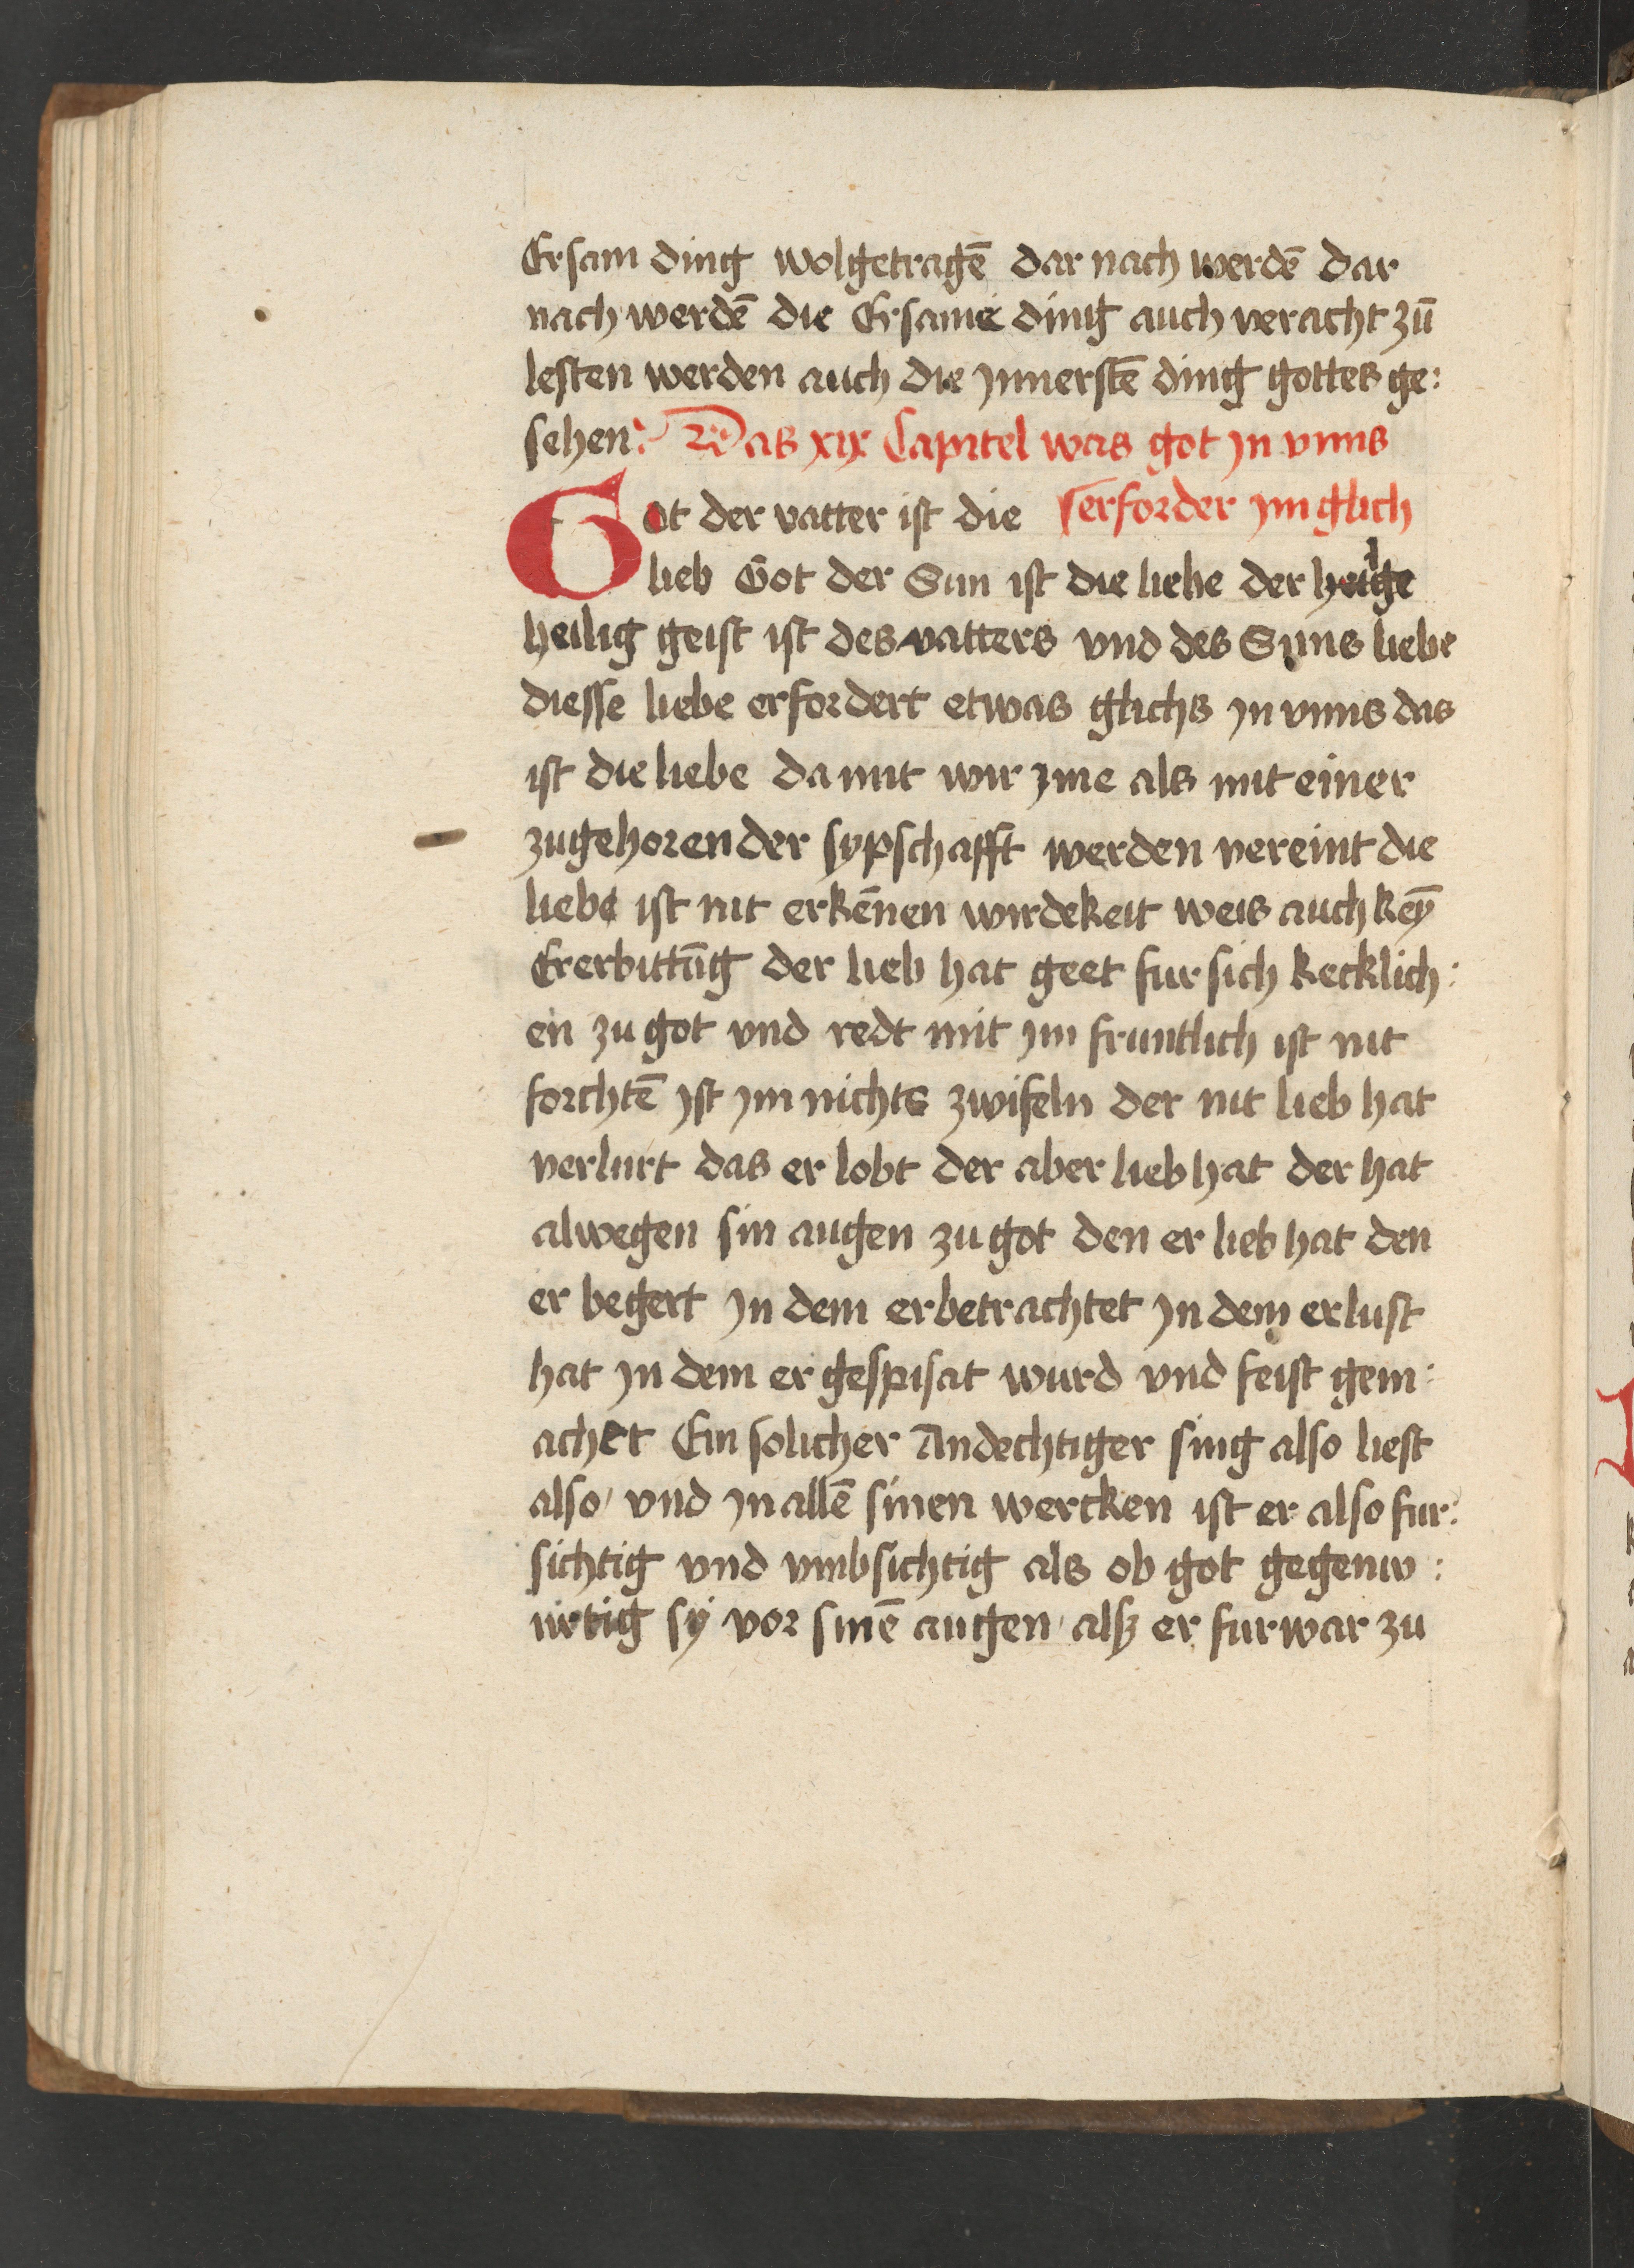 Ersam ding wolgetragē dar nach werdē dar
nach werdē die Ersame ding auch veracht zū
lesten werden auch die Jnnerstē ding gottes ge:
sehen: Das xix Capitel was got Jn vnns
Got der vatter ist die erforder Jm glich
lieb Got der Sun ist die liebe der heilge
heilig geist ist des vatters vnd des Suns liebe
diesse liebe erfordert etwas glichs Jn vnns das
ist die liebe da mit wir Jme als mit einer
zugehorender sypschafft werden vereint die
liebe ist nit erkēnen wirdekeit weis auch keȳ
Ererbittūg der lieb hat geet fur sich kecklich:
en zu got vnd redt mit Jm fruntlich ist nit
forchtē Jst Jm nichts zwifeln der nit lieb hat
verlurt das er lobt der aber lieb hat der hat
alwegen sin augen zu got den er lieb hat den
er begert Jn dem er betrachtet Jn dem er lust
hat Jn dem er gespisat wurd vnd feist gem:
achet Ein solicher Andechtiger sing also liest
also / vnd Jn allē sinen wercken ist er also fur:
sichtig vnd vmbsichtig als ob got gegenw:
irtig sy vor sinē augen / alß er furwar zu